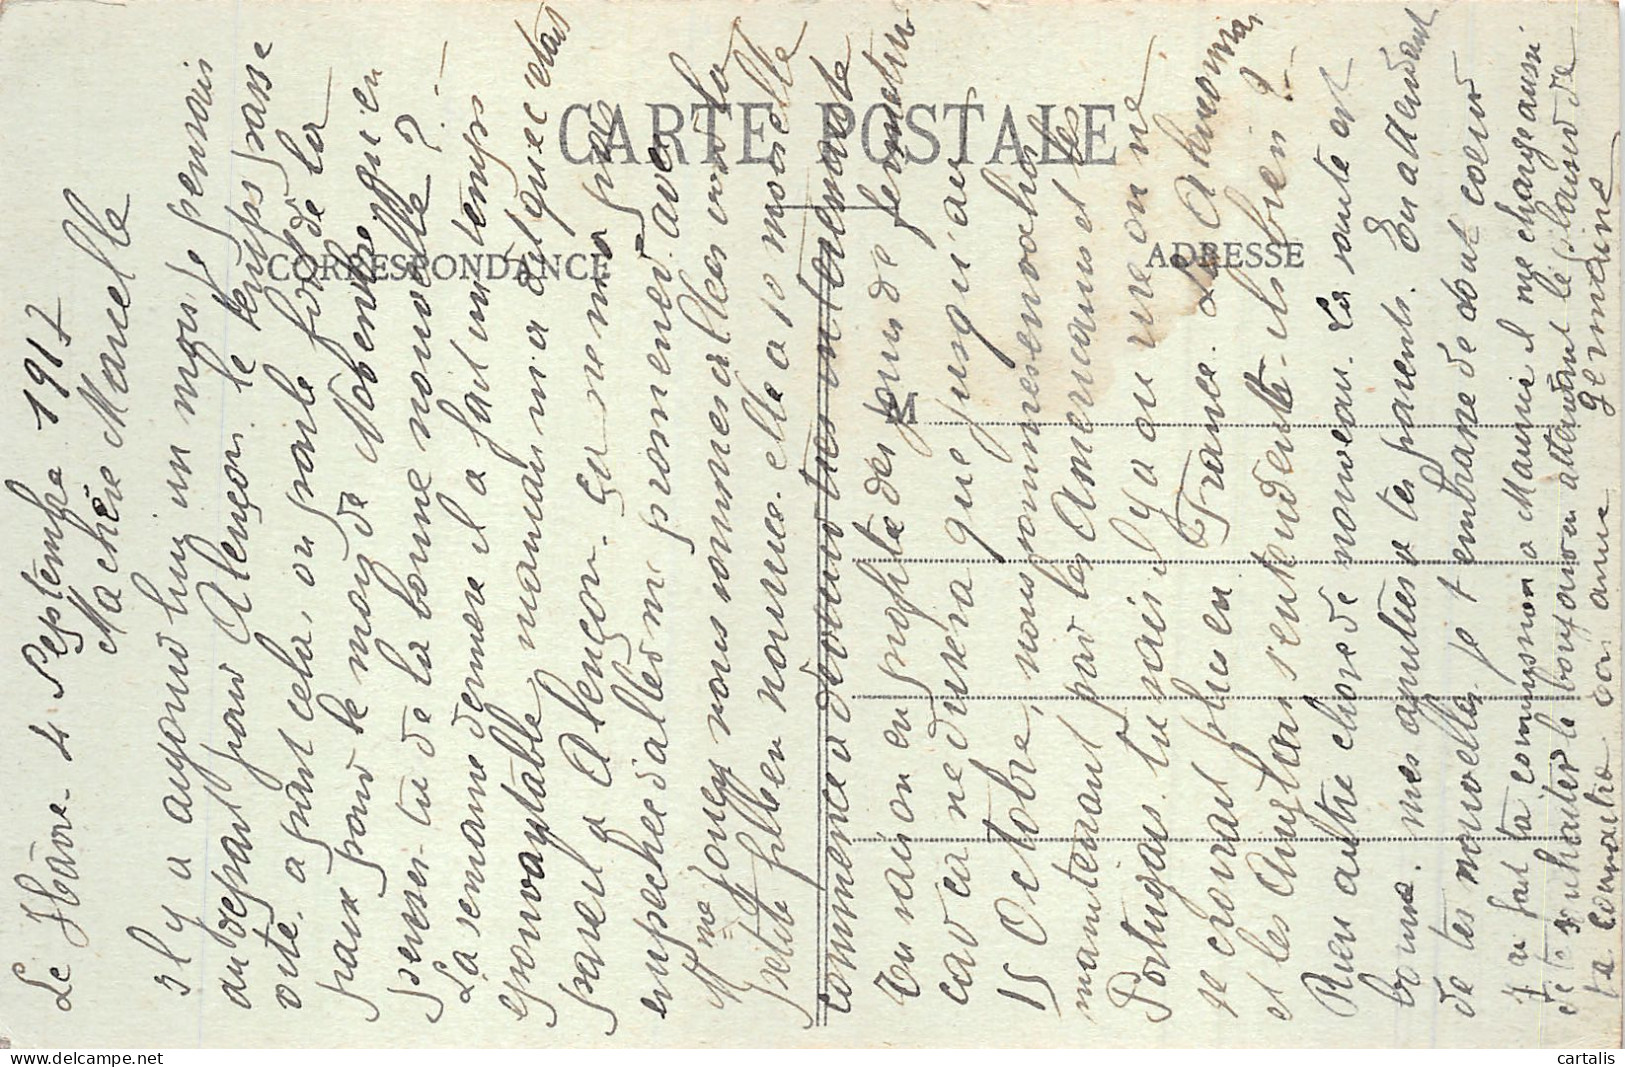 CARTE POSTALE
CORRESPONDANCE
ADRESSE
M
Le Hâvre - 4 Septembre 1917
Ma chère Marcelle
Il y a aujourd'hui un mois je pensais
au départ pour Alençon. le temps passe
vite. a part cela, on parle fort de la
paix pour le mois de Novembre qu'en
penses-tu de la bonne nouvelle ? -
La semaine dernière il a fait un temps
épouvantable, mauvais
pareil a Alençon. ça ne m'a pas
empechée d'aller me promener avec
Mme Jouey nous sommes allées voir la
petite fille en nourrice. elle a 10 mois elle
commence a devenir très intéressante
On raison en profite des jours de fermeture
car ça ne durera que jusqu'au
15 Octobre, nous sommes envahos
maintenant par les Américains et les
Portugais. tu sais il y a ou une on ne
se croirait plus en France.
et les Anglais s'entendent-ils bien ?
Rien autre chose de nouveau. La santé est
bonne. mes amitiés a tes parents. En attendant
de tes nouvelles je t'embrasse de tout coeur
J'ai fait ta commission a Maurice il me charge aussi
de te souhaiter le bonjour en attendant le plaisir de
te connaitre ton amie Germaine
cartalis